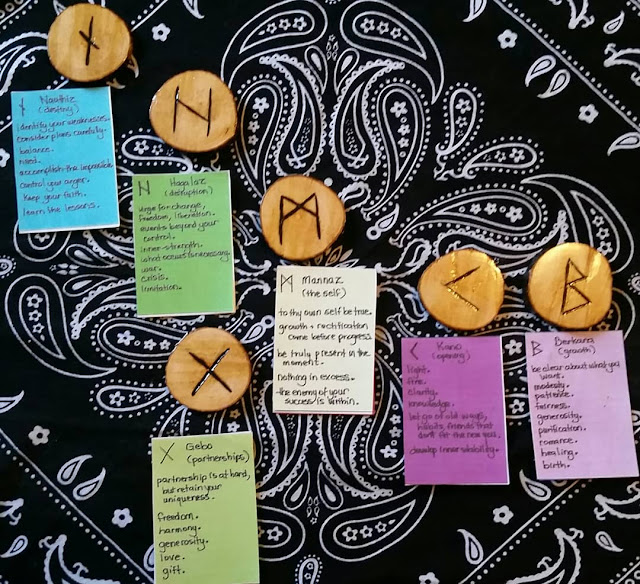 ᚾ
ᚾ Nauthiz
(destiny)
identify your weaknesses.
consider plans carefully.
balance.
need.
accomplish the impossible.
control your anger.
keep your faith.
learn the lessons.
ᚺ
ᚺ Hagalaz
(disruption)
urge for change,
freedom, liberation.
events beyond your
control.
inner-strength.
what occurs is necessary.
war.
crisis.
limitation.
ᛗ
ᛗ Mannaz
(the self)
to thy own self be true.
growth + rectification
come before progress.
be truly present in the
moment.
nothing in excess.
the enemy of your
success is within.
ᚷ
ᚷ Gebo
(partnerships)
partnership is at hand,
but retain your
uniqueness.
freedom.
harmony.
generosity.
love.
gift.
ᚲ
ᚲ Kano
(opening)
light.
fire.
clarity.
knowledge.
let go of old ways,
habits, friends that
don't fit the new you.
develop inner stability.
ᛒ
ᛒ Berkana
(growth)
be clear about what you
want.
modesty.
patience.
fairness.
generosity.
purification.
romance.
healing.
birth.